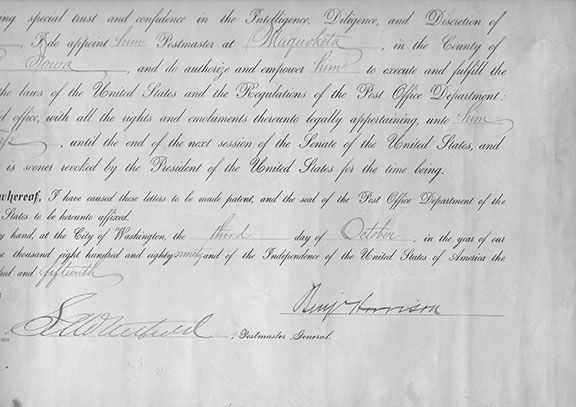 ing special trust and confidence in the Intelligence, Diligence, and Discretion of
, I do appoint him Postmaster at Maquoketa, in the County of
Iowa, and do authorize and empower him to execute and fulfill the
the laws of the United States and the Regulations of the Post Office Department:
d office, with all the rights and emoluments thereunto legally appertaining, unto him
, until the end of the next session of the Senate of the United States, and
is sooner revoked by the President of the United States for the time being.
whereof, I have caused these letters to be made patent, and the seal of the Post Office Department of the
States to be hereunto affixed.
y hand, at the City of Washington, the third day of October, in the year of our
e thousand eight hundred and eighty ninety and of the Independence of the United States of America the
dred and fifteenth
Benj Harrison
, Postmaster General.